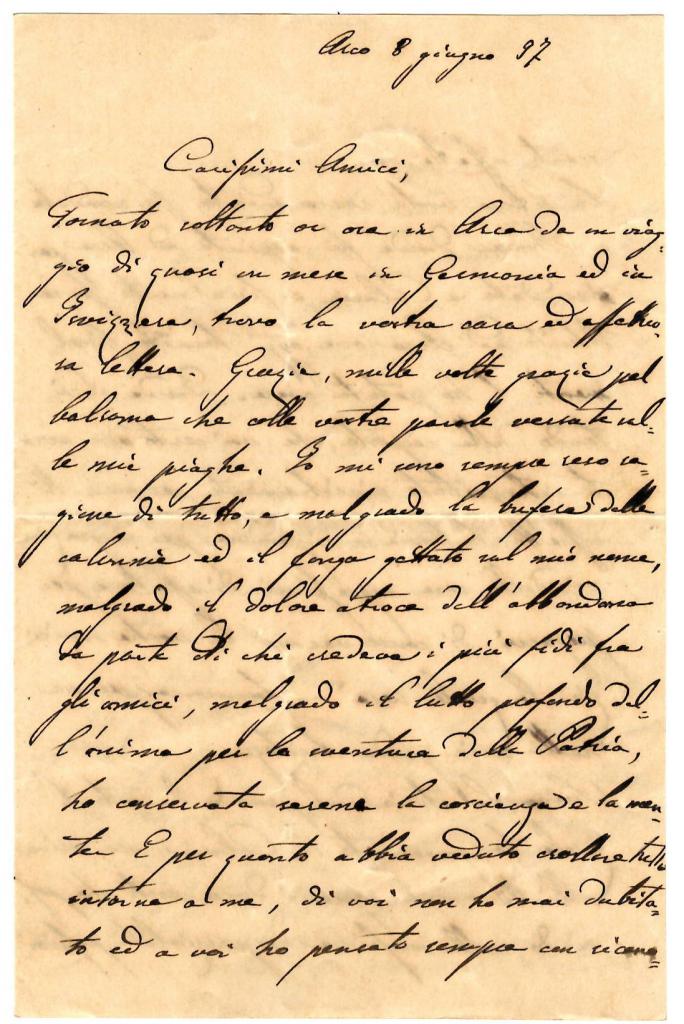 Arco 8 giugno 97
Carissimi Amici,
Tornato soltanto or ora in Arco da un viag=
gio di quasi un mese in Germania ed in
Isvizzera, trovo la vostra cara ed affettuo-
sa lettera. Grazie, mille volte grazie pel
balsamo che colle vostre parole versate sul=
le mie piaghe. Io mi sono sempre reso ra=
gione di tutto, e malgrado la bufera delle
calunnie ed il fango gettato sul mio nome,
malgrado il dolore atroce dell'abbandono
da parte di chi credeva i più fidi fra
gli amici, malgrado il lutto profondo del=
l'anima per la sventura della Patria,
ho conservata serena la coscienza e la men=
te. E per quanto abbia veduto crollare tutto
intorno a me, di voi non ho mai dubita=
to ed a voi ho pensato sempre con ricono=